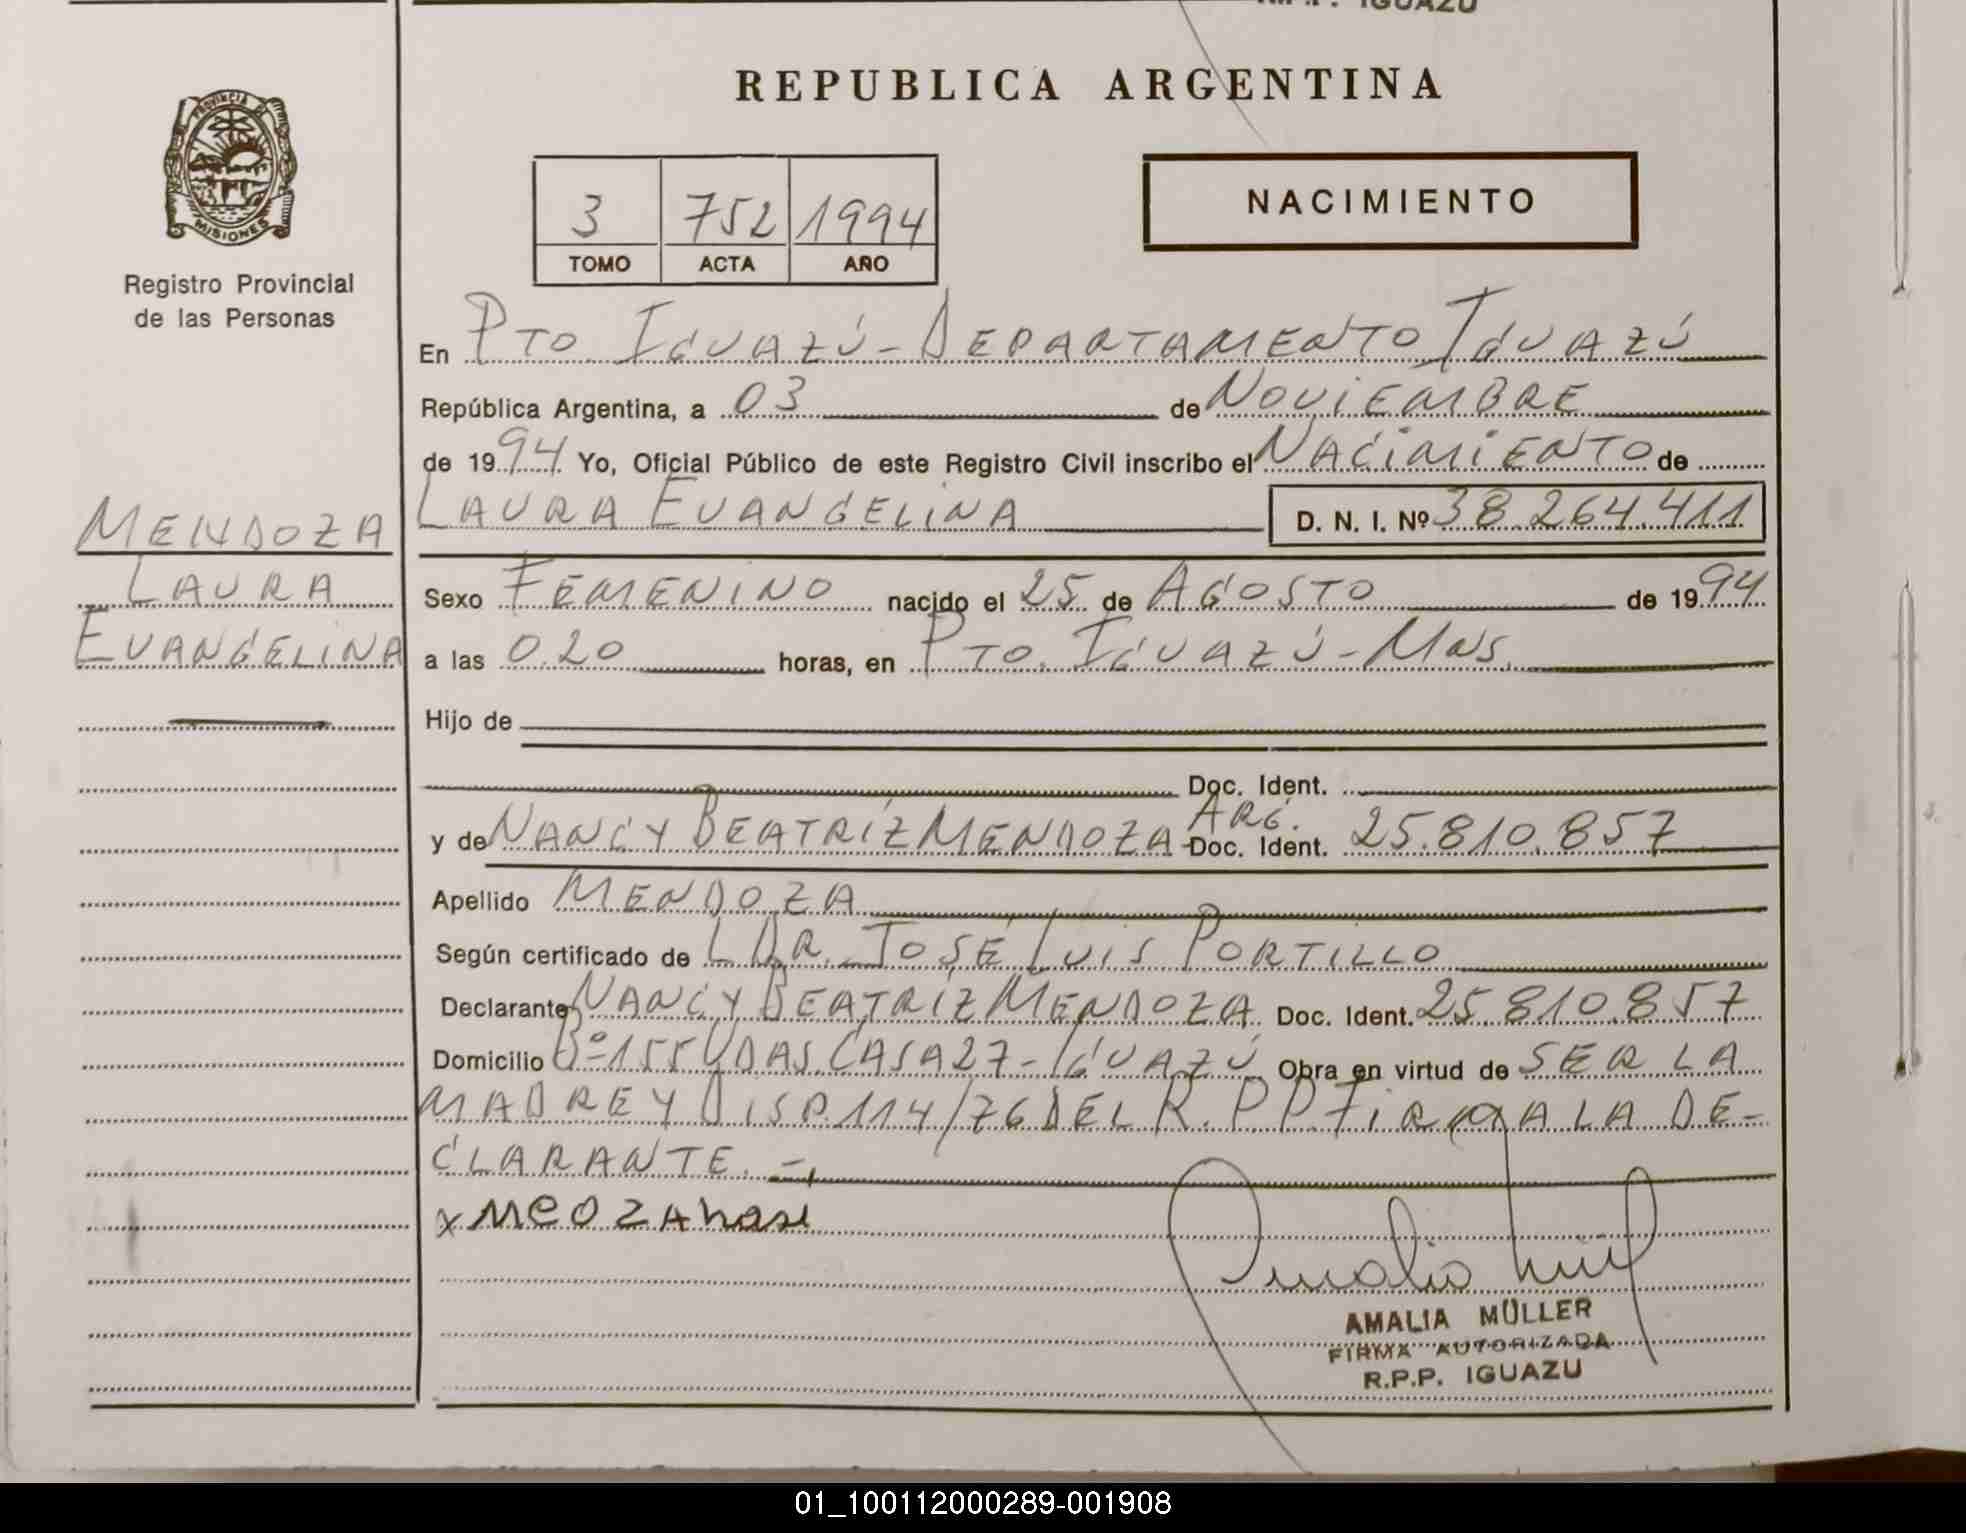 R.P.P. IGUAZU
REPUBLICA ARGENTINA
PROVINCIA DE
MISIONES
Registro Provincial
de las Personas
3 752 1994
TOMO ACTA AÑO
NACIMIENTO
En PTO. IGUAZÚ - DEPARTAMENTO IGUAZÚ
República Argentina, a 03 de NOVIEMBRE
de 1994 Yo, Oficial Público de este Registro Civil inscribo el NACIMIENTO de
LAURA EVANGELINA D. N. I. Nº 38.264.411
MENDOZA
LAURA
EVANGELINA
Sexo FEMENINO nacido el 25 de AGOSTO de 1994
a las 0.20 horas, en PTO. IGUAZÚ - MNS.
Hijo de
Doc. Ident.
y de NANCY BEATRÍZ MENDOZA - ARG. Doc. Ident. 25.810.857
Apellido MENDOZA
Según certificado de L DR. JOSÉ LUIS PORTILLO
Declarante NANCY BEATRÍZ MENDOZA Doc. Ident. 25.810.857
Domicilio Bº 155 VDAS. CASA 27 - IGUAZÚ Obra en virtud de SER LA
MADRE Y DISP. 114/76 DEL R.P.P. FIRMA LA DE-
CLARANTE. -
AMALIA MÜLLER
FIRMA AUTORIZADA
R.P.P. IGUAZU
01_100112000289-001908